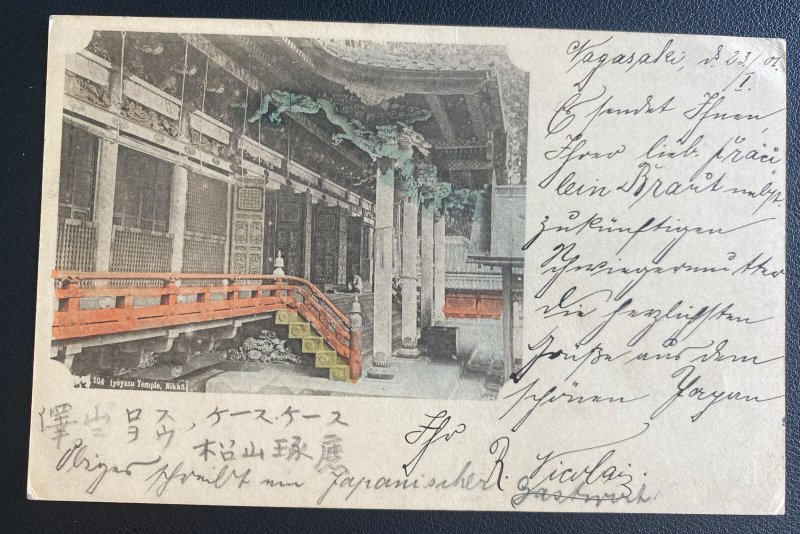 Nagasaki, d. 23/I. 01.
Es sendet Ihnen,
Ihrer lieb. Fräu
lein Braut nebst
zukünftigen
Schwiegermutter
die herzlichsten
Grüße aus dem
schönen Japan
Ihr
R. Nicolai.
104 Iyeyasu Temple, Nikko.
澤山ロース、ケースケース
ニヲウ
松山琢
Obiges schreibt ein Japanischer Gastwirt